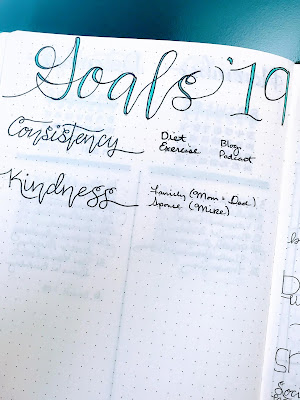 Goals '19
Consistency
Diet Blog
Exercise Podcast
Kindness
Family (Mom + Dad)
Spouse (Mike)